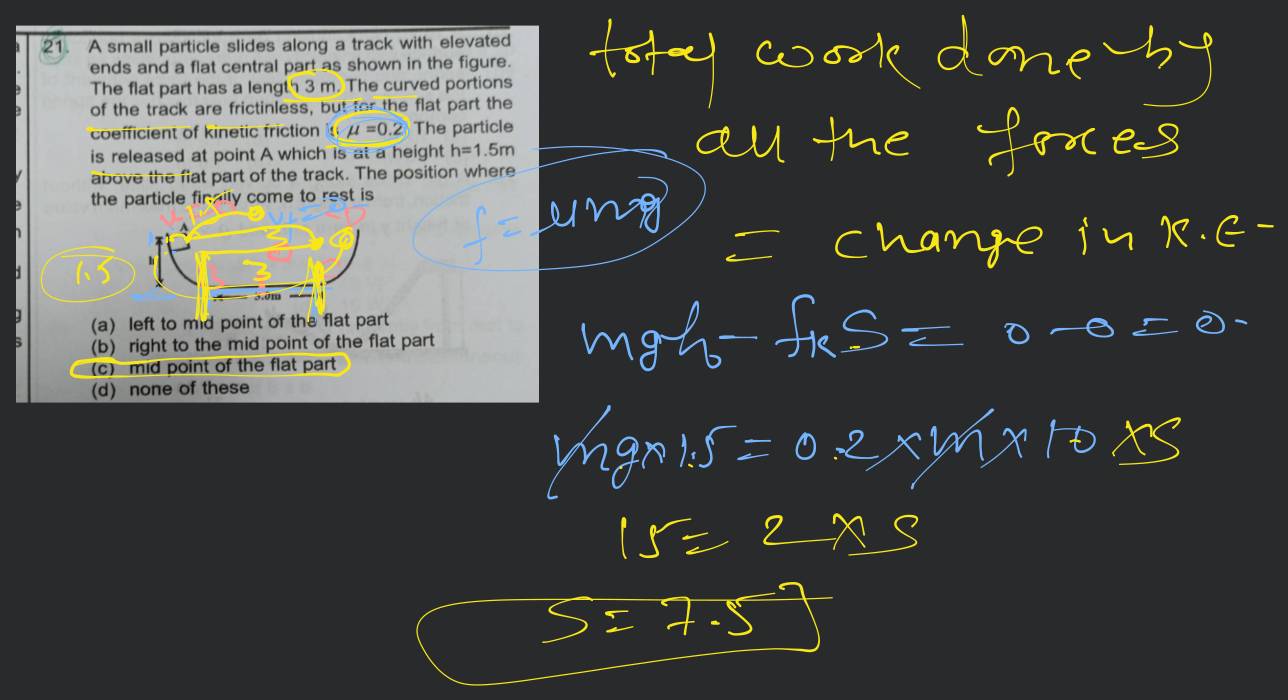 21. A small particle slides along a track with elevated
ends and a flat central part as shown in the figure.
The flat part has a length 3 m. The curved portions
of the track are frictinless, but for the flat part the
coefficient of kinetic friction is μ =0.2. The particle
is released at point A which is at a height h=1.5m
above the flat part of the track. The position where
the particle finally come to rest is
A
1.5
3
3
h
3.0m
1.5
(a) left to mid point of the flat part
(b) right to the mid point of the flat part
(c) mid point of the flat part
(d) none of these
total work done by
all the forces
= change in K.E-
f = μmg
mgh - fk.S = 0 - 0 = 0-
mg×1.5 = 0.2×m×10 ×S
15 = 2 × S
S = 7.5